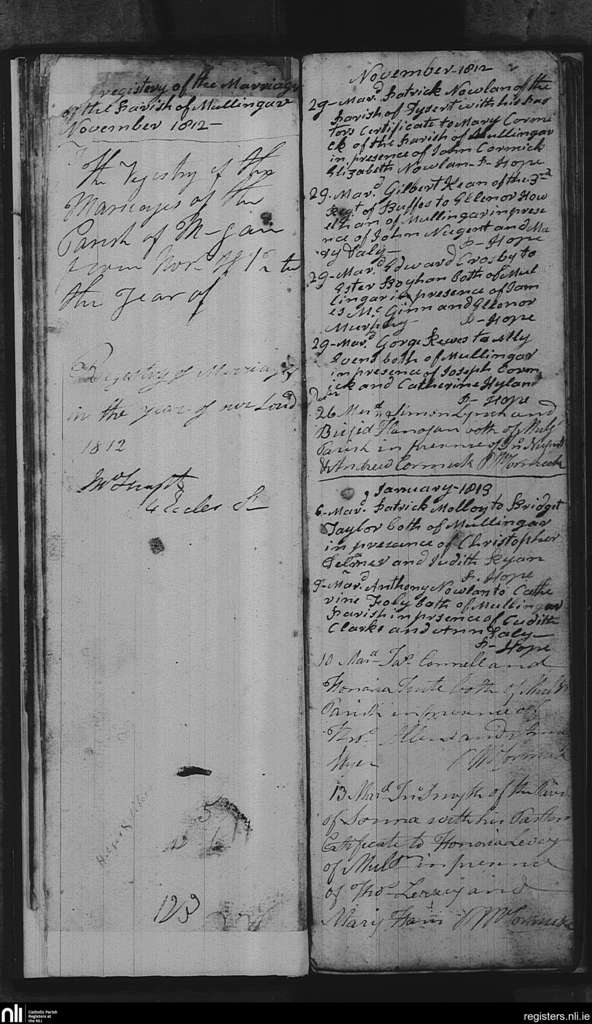 registery of the Marriag
of the Parish of Mullingar
November 1812
The Regestry of the
Marriages of the
Parish of M-gar
from Novr. 1812 to
the year of
Registry of Marriages
in the year of our Lord
1812
123
November-1812
29-Mard. Patrick Newlan of the
Parish of Dysert with his Pas
tors Certificate to Mary Corm
ck of the Parish of Mullingar
in presence of John Cormick
Elizabeth Nowlan- P- Hope
29-Mard. Gilbert Kean of the 3rd
Regt. of Buffos to Elenor How
than of Mullingar in prese
nce of John Niegent and Ma
ry Daly- P-Hope
29-Mard. Edward Crosby to
Ester Boyhan both of Mul
lingar in presence of Jam
es Mc. Ginn and Elenor
Murphy P-Hope
29-Mard. Gorge Reves to
Ivens both of Mullingar
in presence of Joseph Corm
ick and Catherine Hyland
P-Hope
26 Mard. Simon Lynch and
Brigid Flanagan both of Mulr
Parish in presence of Jno. Nugent
& Andrew Cormick P McCormick
January-1813
6-Mard. Patrick Molloy to Bridget
Taylor both of Mullingar
in presence of Christopher
Delmer and Judith Ryan
P-Hope
9-Mard. Anthony Nowlan to Cathe
rine Foly both of Mullingar
Parish in presence of Cudith
Clarke and Ann Daly-
P-Hope
10 Mard. Jas. Connell and
Honoria Tuite both of Mullr
Parish in presence of
Thos. and
P McCormick
13 Mard. Jno. Smyth of the
of Sonna with his Pastors
Certificate to Honoria Levey
of Mullr in presence
of Thos. and
Mary P McCormick
nli
Catholic Parish
Registers at
the NLI
registers.nli.ie